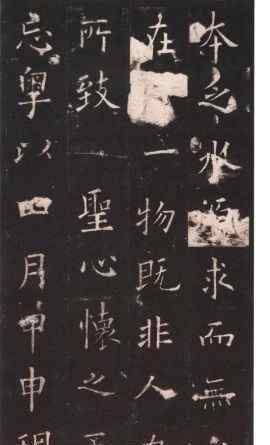 本乏水源求而無
在一物既非人
所致聖心懷之
忘粵以四月甲申